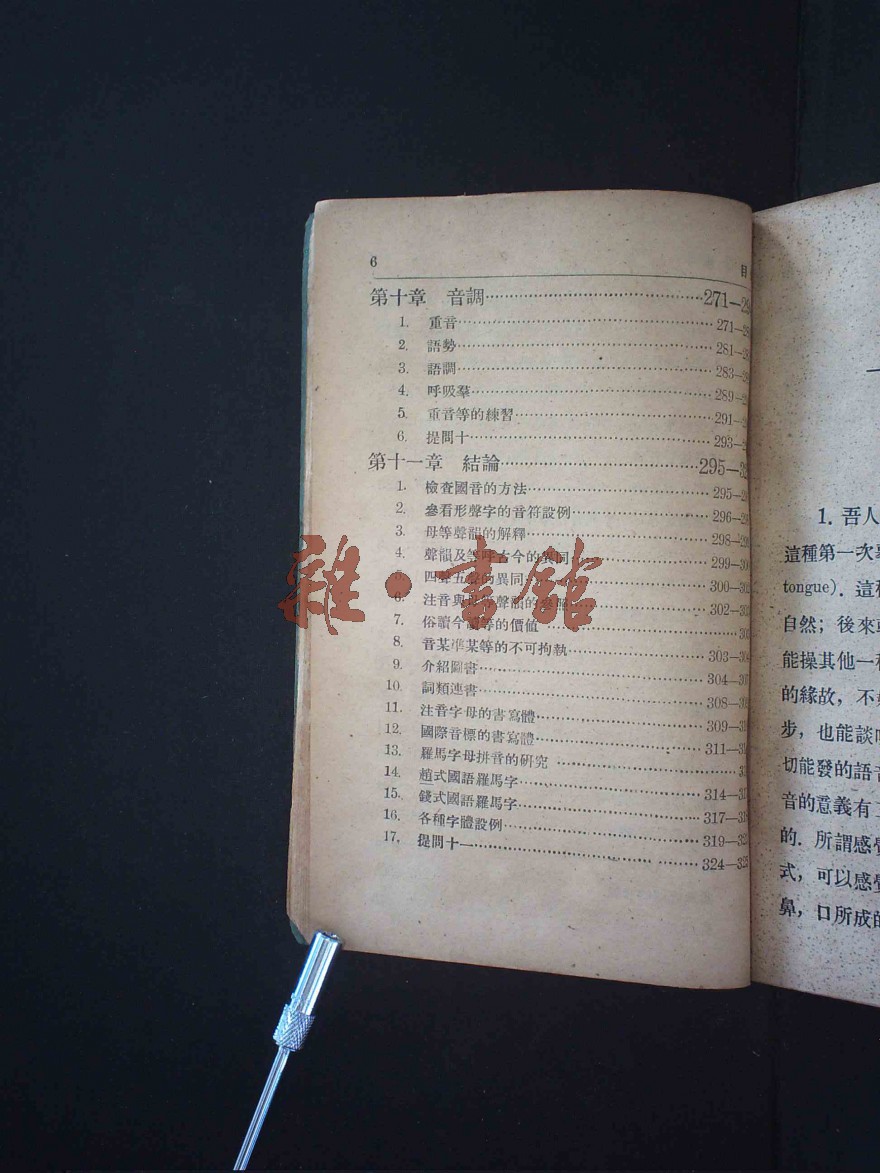 6
目
第十章 音調 271—
1. 重音 271—
2. 語勢 281—
3. 語調 283—
4. 呼吸羣 289—
5. 重音等的練習 291—
6. 提問十 293—
第十一章 結論 295—
1. 檢查國音的方法 295—
2. 參看形聲字的音符設例 296—
3. 母等聲韻的解釋 298—
4. 聲韻及等呼古今的異同 299—
5. 四聲五聲的異同 300—
6. 注音與 聲韻的 302—
7. 俗讀今讀等的價值
8. 音某準某等的不可拘執 303—
9. 介紹圖書 304—
10. 詞類連書 308—
11. 注音字母的書寫體 309—
12. 國際音標的書寫體 311—
13. 羅馬字母拼音的研究
14. 趙式國語羅馬字 314—
15. 錢式國語羅馬字 317—
16. 各種字體設例 319—
17. 提問十一 324—
雜·書館
一
1. 吾人
這種第一次
tongue). 這
自然; 後來
能操其他一
的緣故, 不
步, 也能談
切能發的語
音的意義有
的. 所謂感
式, 可以感
鼻, 口所成的